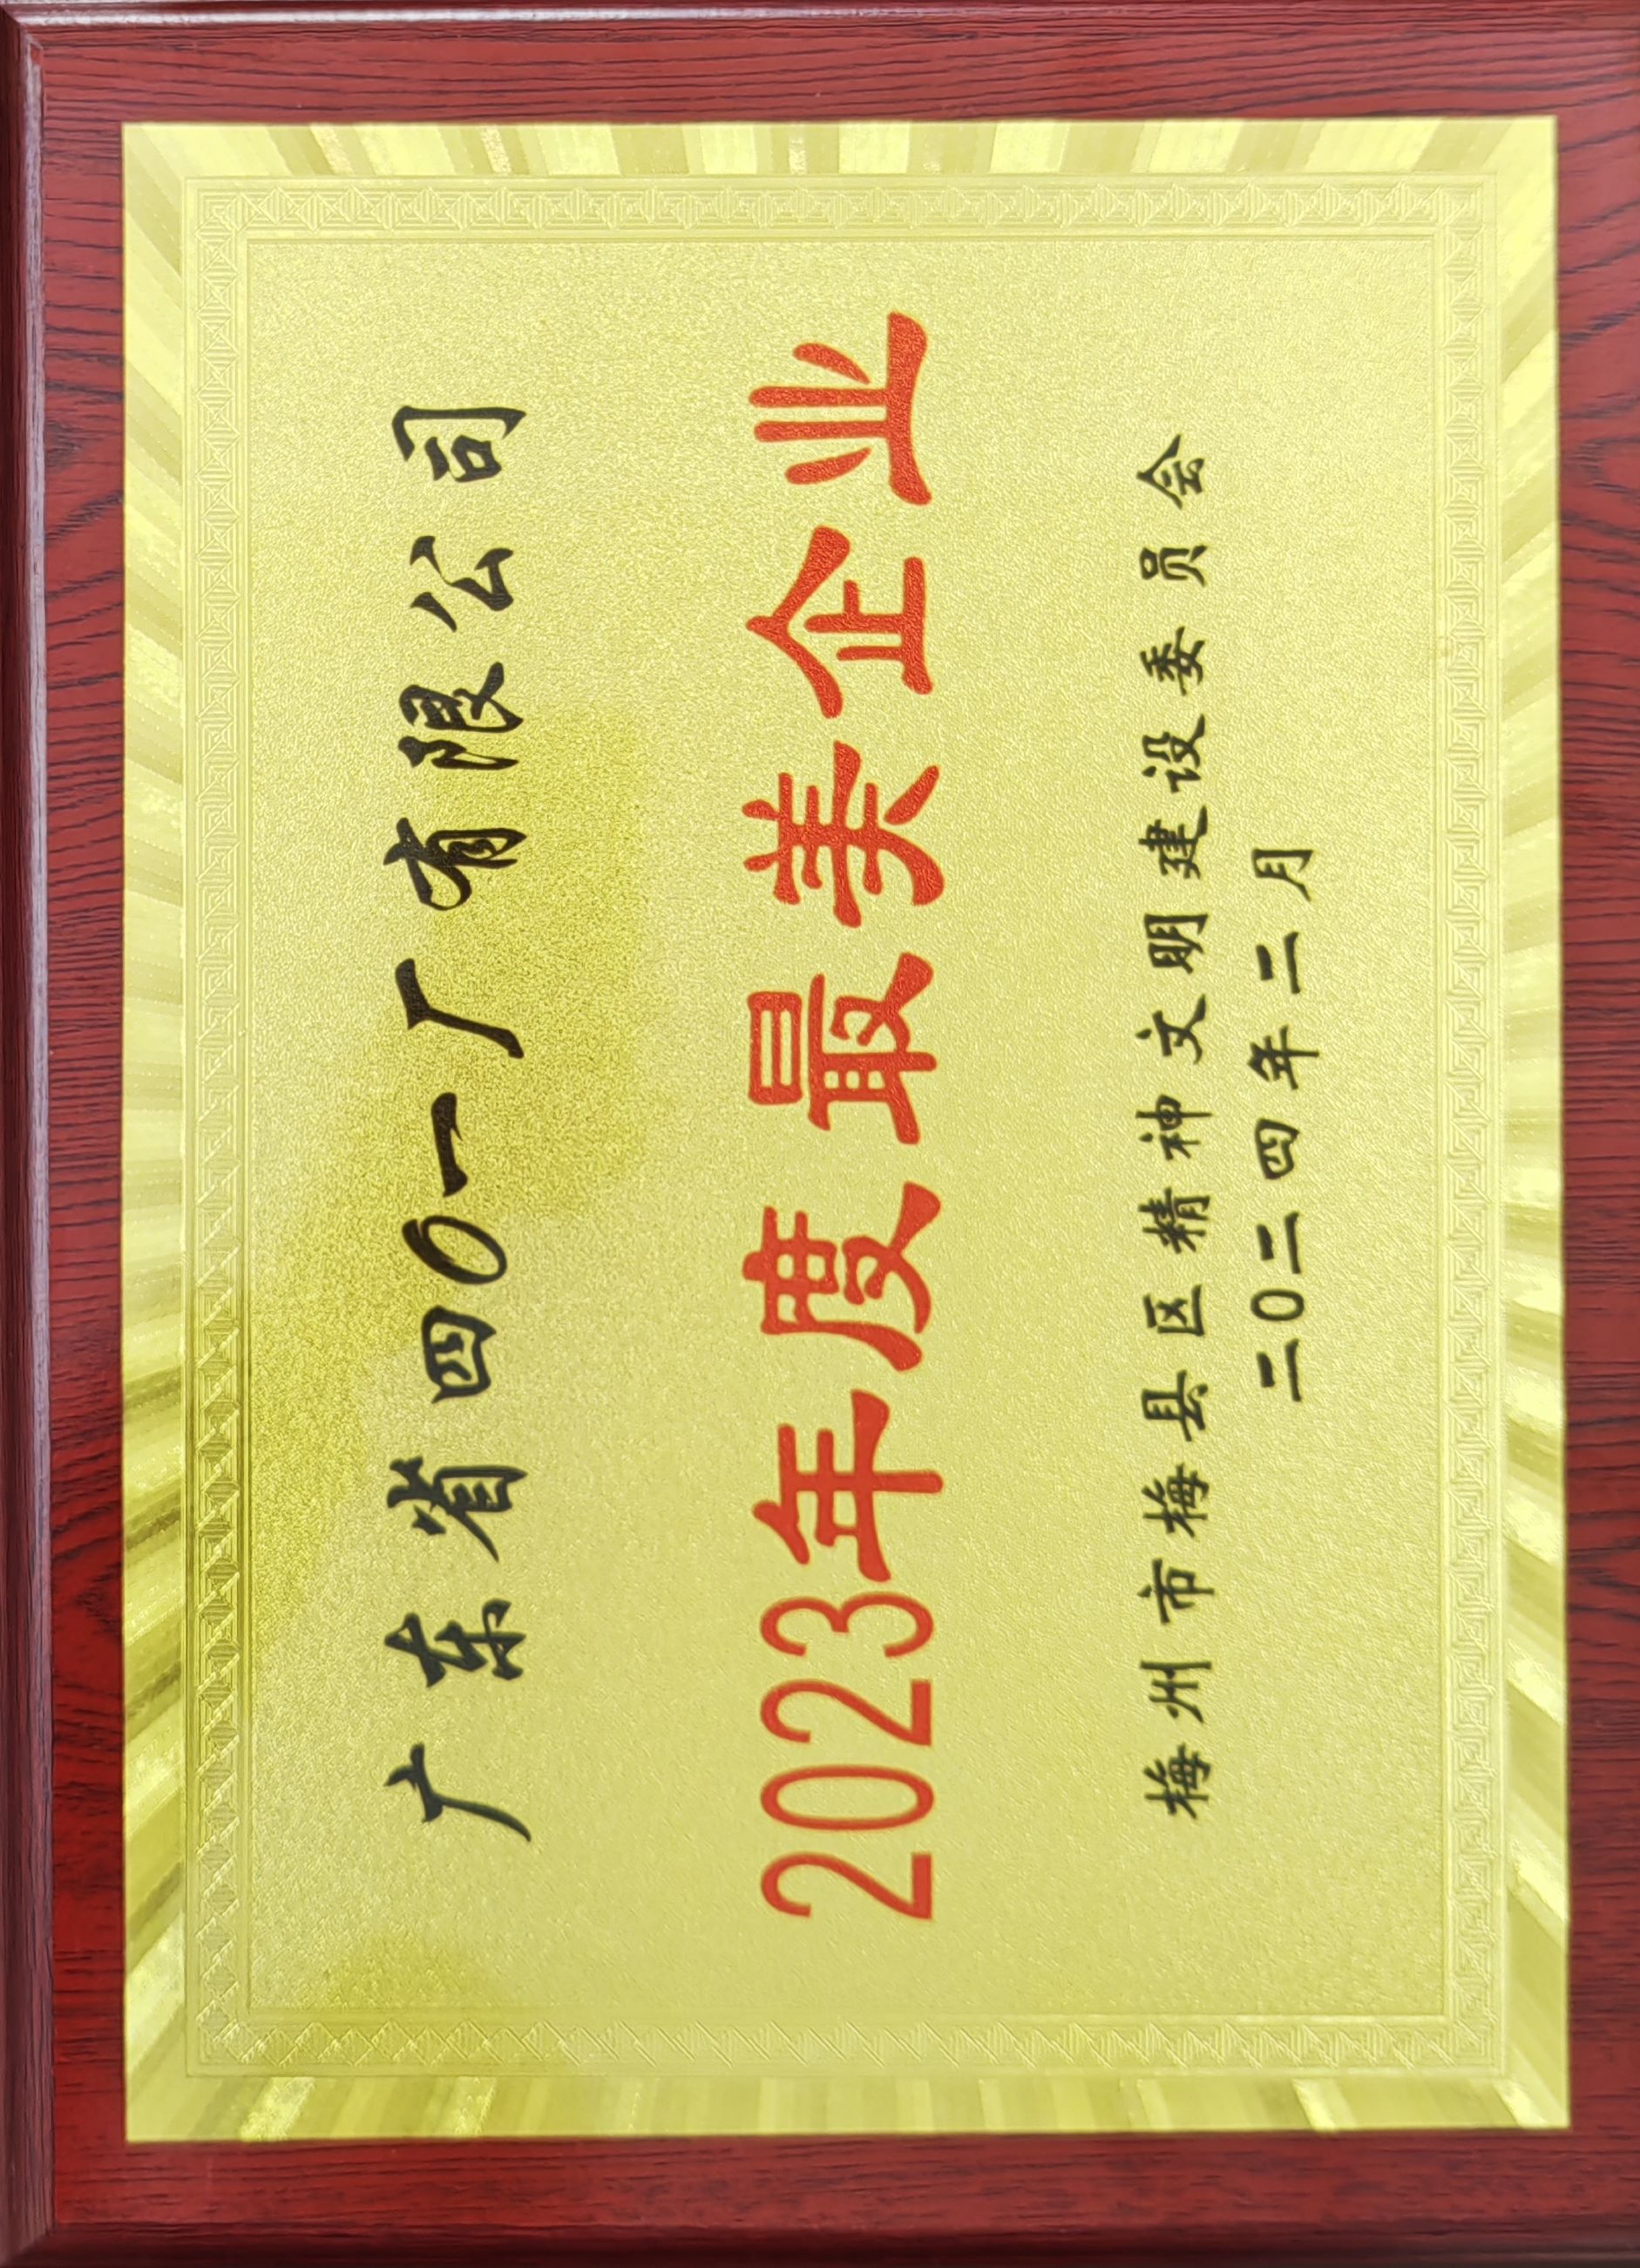 广东省四〇一厂有限公司
2023年度最美企业
梅州市梅县区精神文明建设委员会
二〇二四年二月